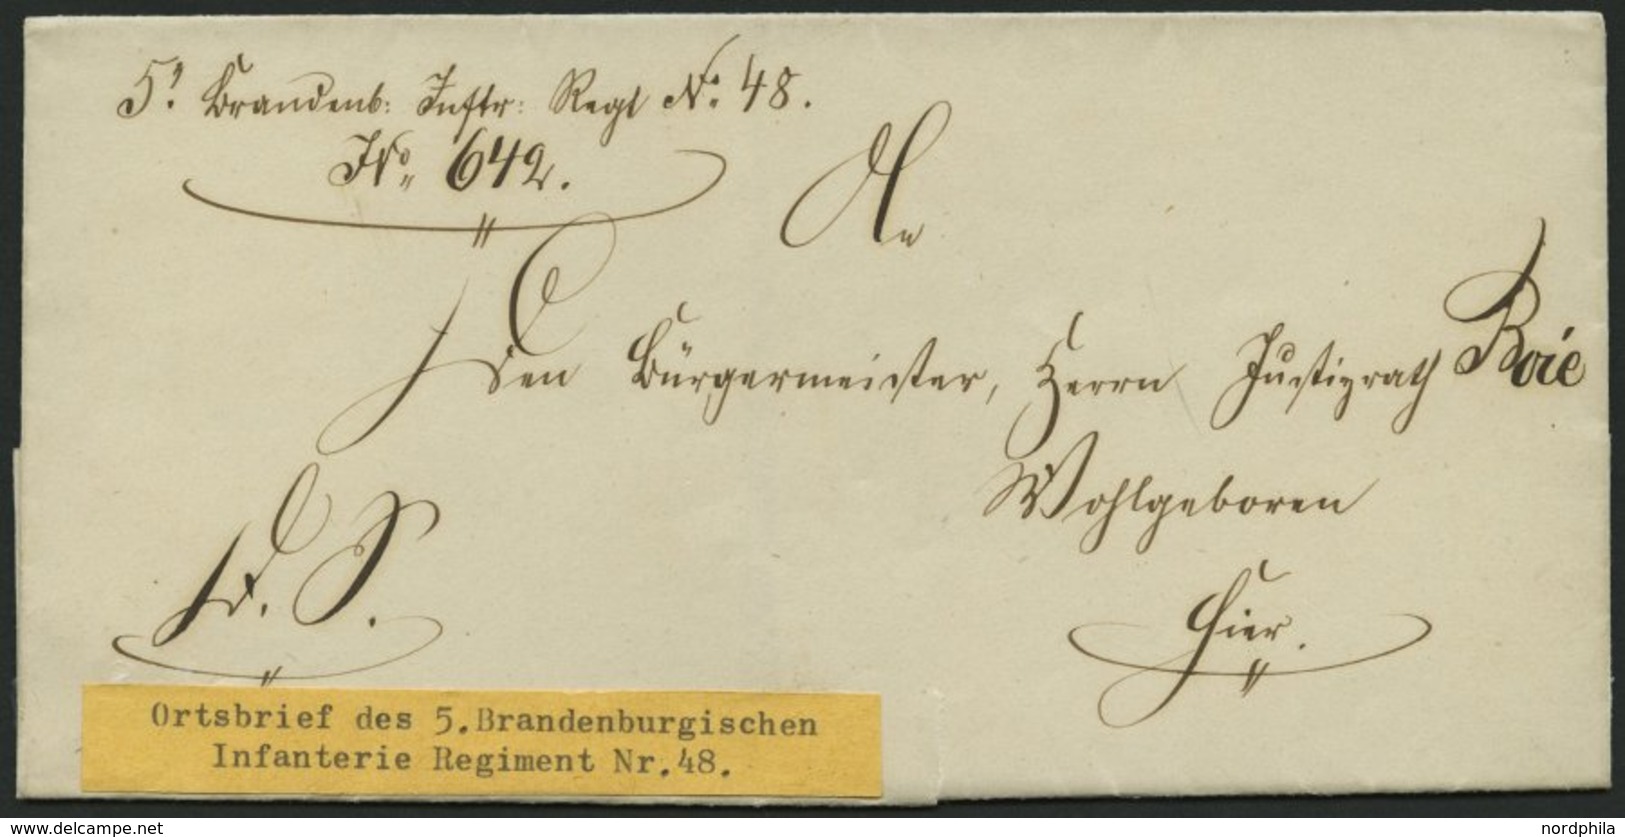 5t. Brandenb: Inftr: Regt No. 48.
No. 642.
An
den Bürgermeister, Herrn Justizrath Boie
Wohlgeboren
Hier.
D. S.
Ortsbrief des 5.Brandenburgischen
Infanterie Regiment Nr.48.
delcampe.net
nordphila